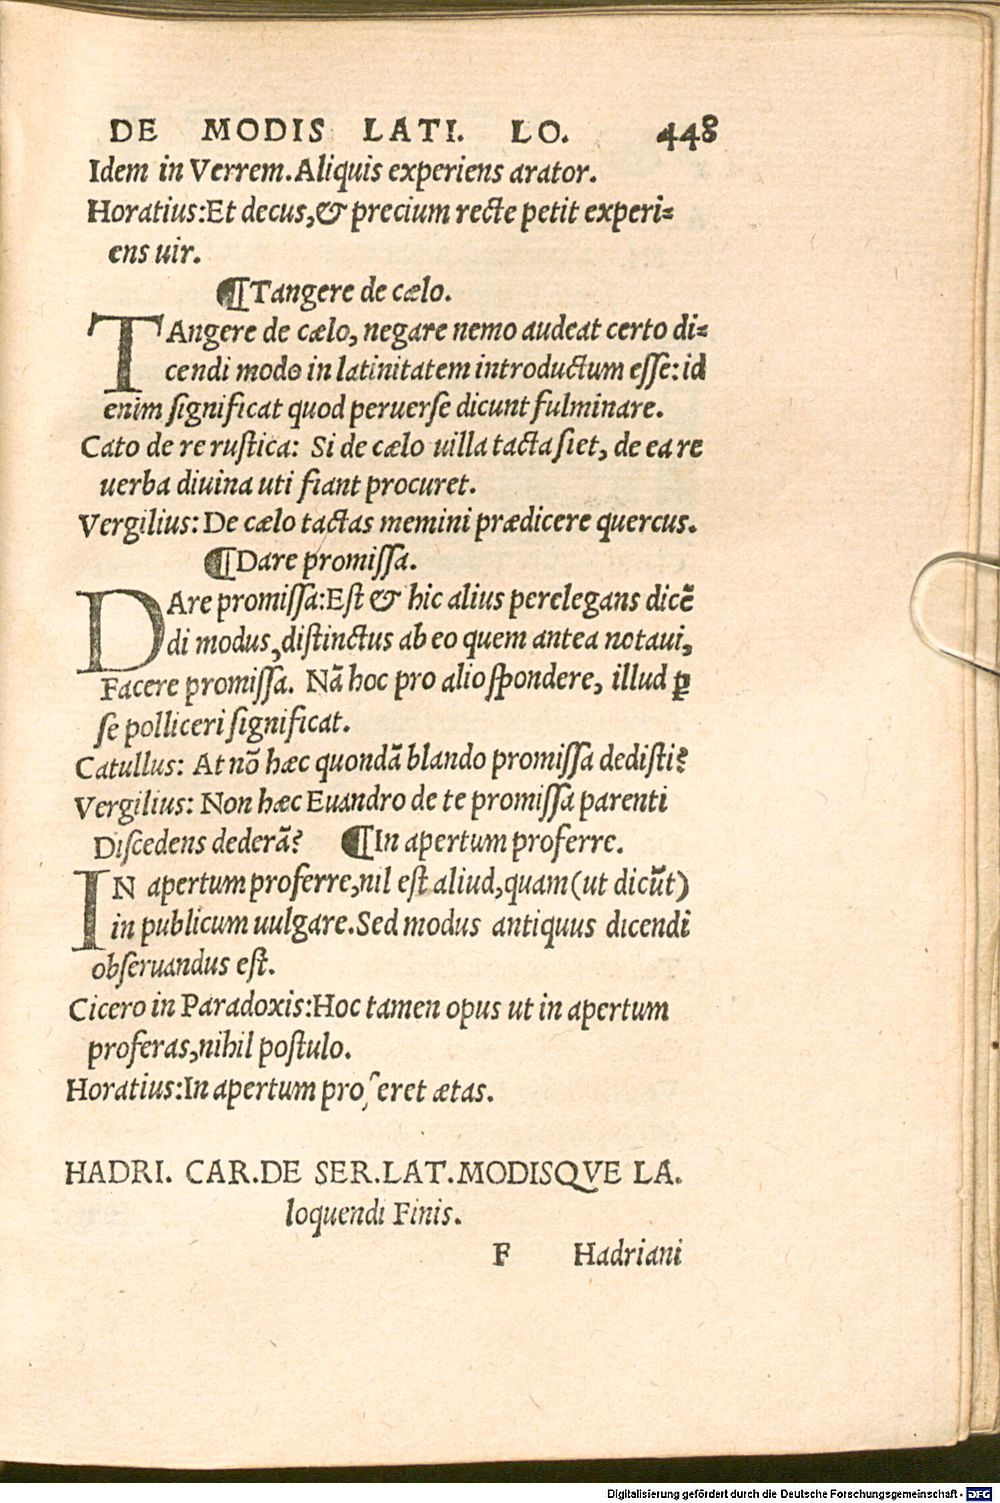 DE MODIS LATI. LO. 448
Idem in Verrem.Aliquis experiens arator.
Horatius:Et decus,& precium recte petit experi=
ens uir.
¶Tangere de cælo.
TAngere de cælo, negare nemo audeat certo di=
cendi modo in latinitatem introductum esse:id
enim significat quod peruerse dicunt fulminare.
Cato de re rustica: Si de cælo uilla tacta siet, de ea re
uerba diuina uti fiant procuret.
Vergilius: De cælo tactas memini prædicere quercus.
¶Dare promissa.
DAre promissa:Est & hic alius perelegans dicẽ
di modus,distinctus ab eo quem antea notaui,
Facere promissa. Nã hoc pro alio spondere, illud ꝑ
se polliceri significat.
Catullus: At nõ hæc quondã blando promissa dedisti?
Vergilius: Non hæc Euandro de te promissa parenti
Discedens dederã? ¶In apertum proferre.
IN apertum proferre,nil est aliud,quam(ut dicũt)
in publicum uulgare.Sed modus antiquus dicendi
obseruandus est.
Cicero in Paradoxis:Hoc tamen opus ut in apertum
proferas,nihil postulo.
Horatius:In apertum proſeret ætas.
HADRI. CAR.DE SER.LAT.MODISQVE LA.
loquendi Finis.
F Hadriani
Digitalisierung gefördert durch die Deutsche Forschungsgemeinschaft - DFG